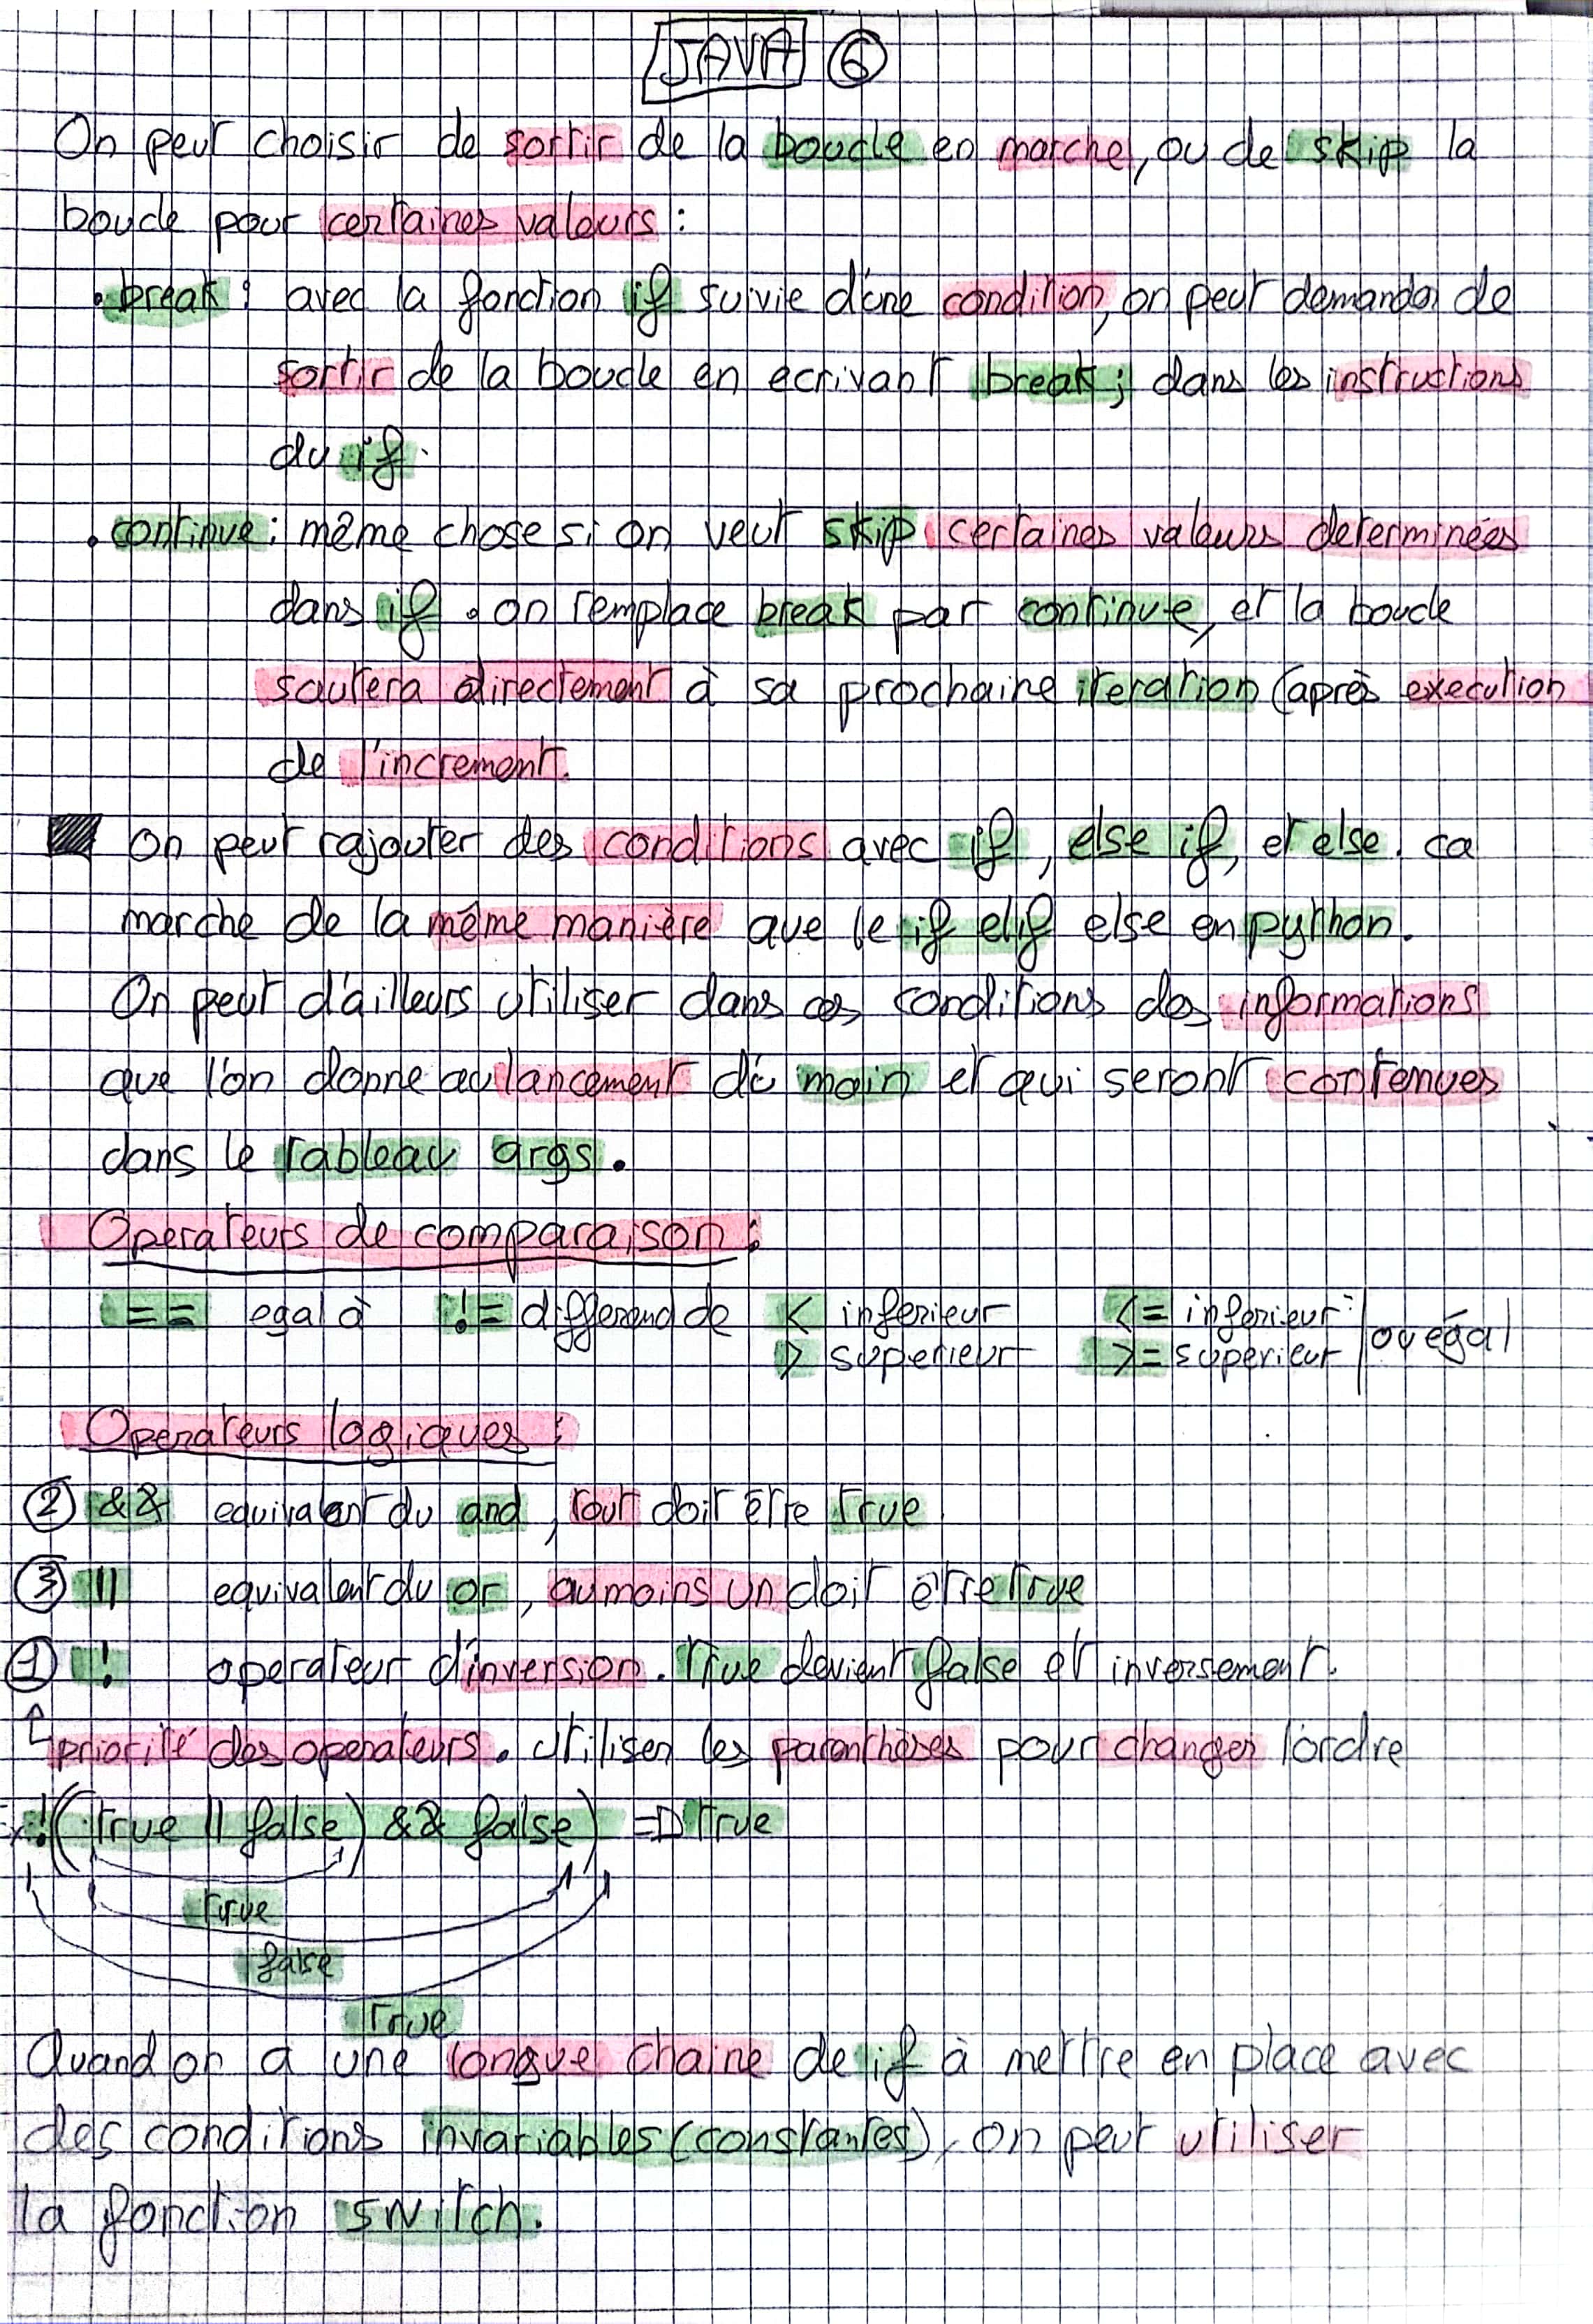 JAVA 6
On peut choisir de sortir de la boucle en marche, ou de skip la
boucle pour certaines valeurs :
. break : avec la fonction if suivie d'une condition, on peut demander de
sortir de la boucle en ecrivant break; dans les instructions
du if.
. continue : même chose si on veut skip certaines valeurs determinées
dans if. on remplace break par continue, et la boucle
sautera directement à sa prochaine iteration (après execution
de l'increment.
On peut rajouter des conditions avec if, else if, et else. ca
marche de la même manière que le if elif else en python.
On peut d'ailleurs utiliser dans ces conditions des informations
que l'on donne au lancement du main et qui seront contenues
dans le tableau args.
Operateurs de comparaison :
== egal à != differend de < inferieur <= inferieur ou égal
> superieur >= superieur
Operateurs logiques :
2 && equivalent du and, tout doit être true
3 || equivalent du or, au moins un doit être true
1 ! operateur d'inversion. True devient false et inversement.
priorité des operateurs. Utiliser les parenthèses pour changer l'ordre
!((true || false) && false) => true
true
false
true
Quand on a une longue chaine de if à mettre en place avec
des conditions invariables (constantes), on peut utiliser
la fonction switch.